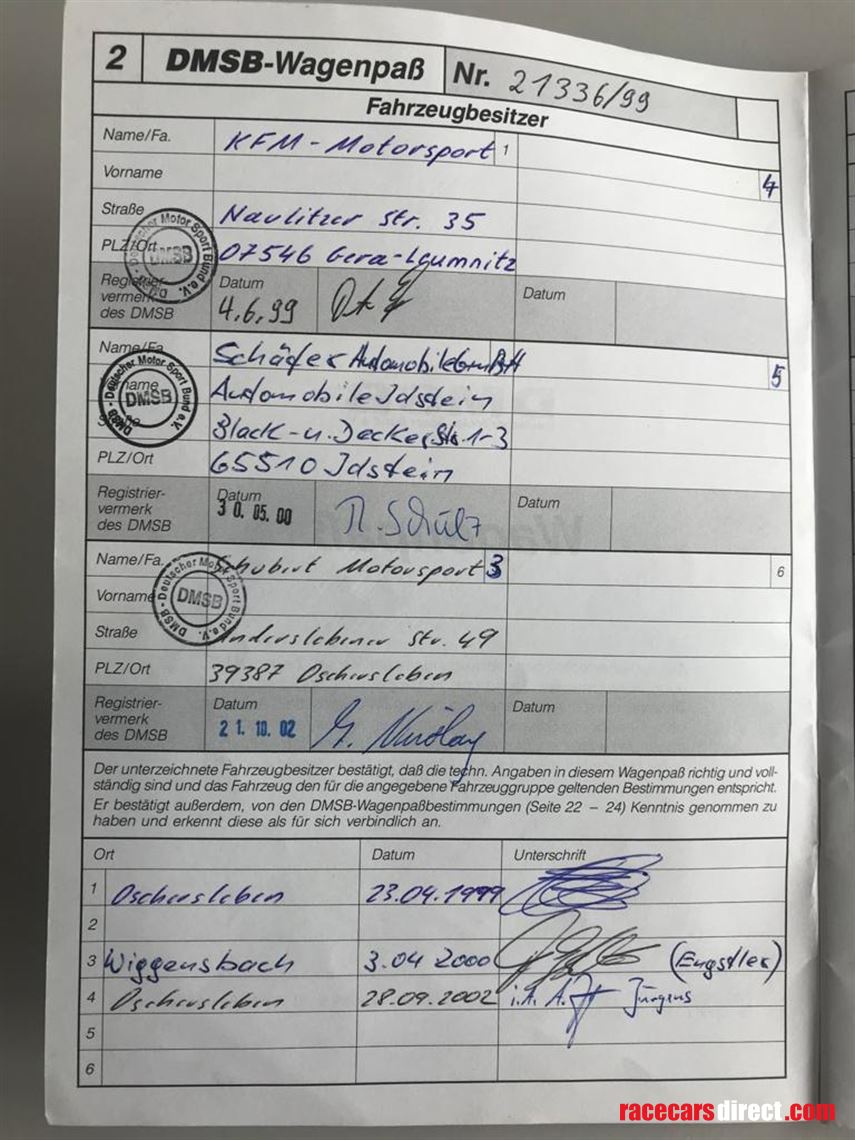 2 DMSB-Wagenpaß Nr. 21336/99
Fahrzeugbesitzer
Name/Fa. KFM - Motorsport 1
Vorname 4
Straße Naulitzer Str. 35
PLZ/Ort 07546 Gera-Leumnitz
Registrier-
vermerk
des DMSB
Datum
4.6.99
Datum
Deutscher Motor Sport Bund e.V.
DMSB
Name/Fa. Schäfer Automobile GmbH
5
Automobile Idstein
Black-u. Decker Str. 1-3
PLZ/Ort 65510 Idstein
Deutscher Motor Sport Bund e.V.
DMSB
Registrier-
vermerk
des DMSB
Datum
30.05.00
Datum
Name/Fa. Schubert Motorsport 3
6
Vorname
Straße Anderslebener Str. 49
PLZ/Ort 39387 Oschersleben
DMSB - Deutscher Motor Sport Bund e.V.
DMSB
Registrier-
vermerk
des DMSB
Datum
21.10.02
Datum
Der unterzeichnete Fahrzeugbesitzer bestätigt, daß die techn. Angaben in diesem Wagenpaß richtig und voll-
ständig sind und das Fahrzeug den für die angegebene Fahrzeuggruppe geltenden Bestimmungen entspricht.
Er bestätigt außerdem, von den DMSB-Wagenpaßbestimmungen (Seite 22 – 24) Kenntnis genommen zu
haben und erkennt diese als für sich verbindlich an.
Ort Datum Unterschrift
1 Oschersleben 23.04.1999
2
3 Wiggensbach 3.04 2000 (Engstler)
4 Oschersleben 28.09.2002 i.A. Jürgens
5
6
racecarsdirect.com